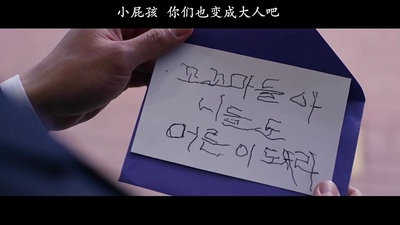 小屁孩 你们也变成大人吧
꼬꼬마들아
니들도
어른이 돼라